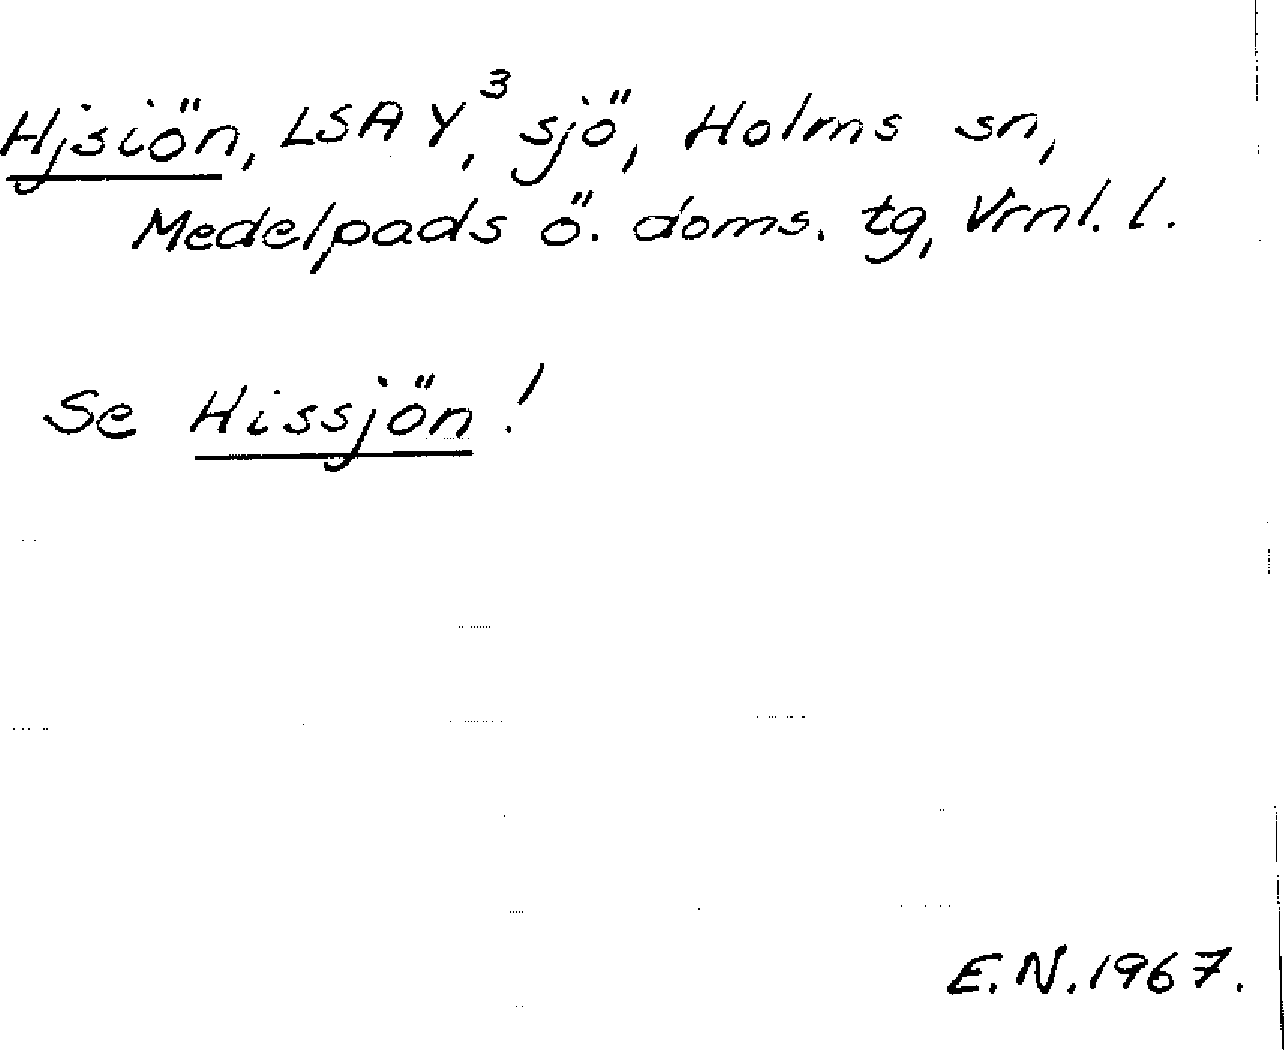 Hjsiön, LSA Y³, sjö, Holms sn,
Medelpads ö. doms. tg, Vrnl. l.
Se Hissjön!
E.N. 1967.